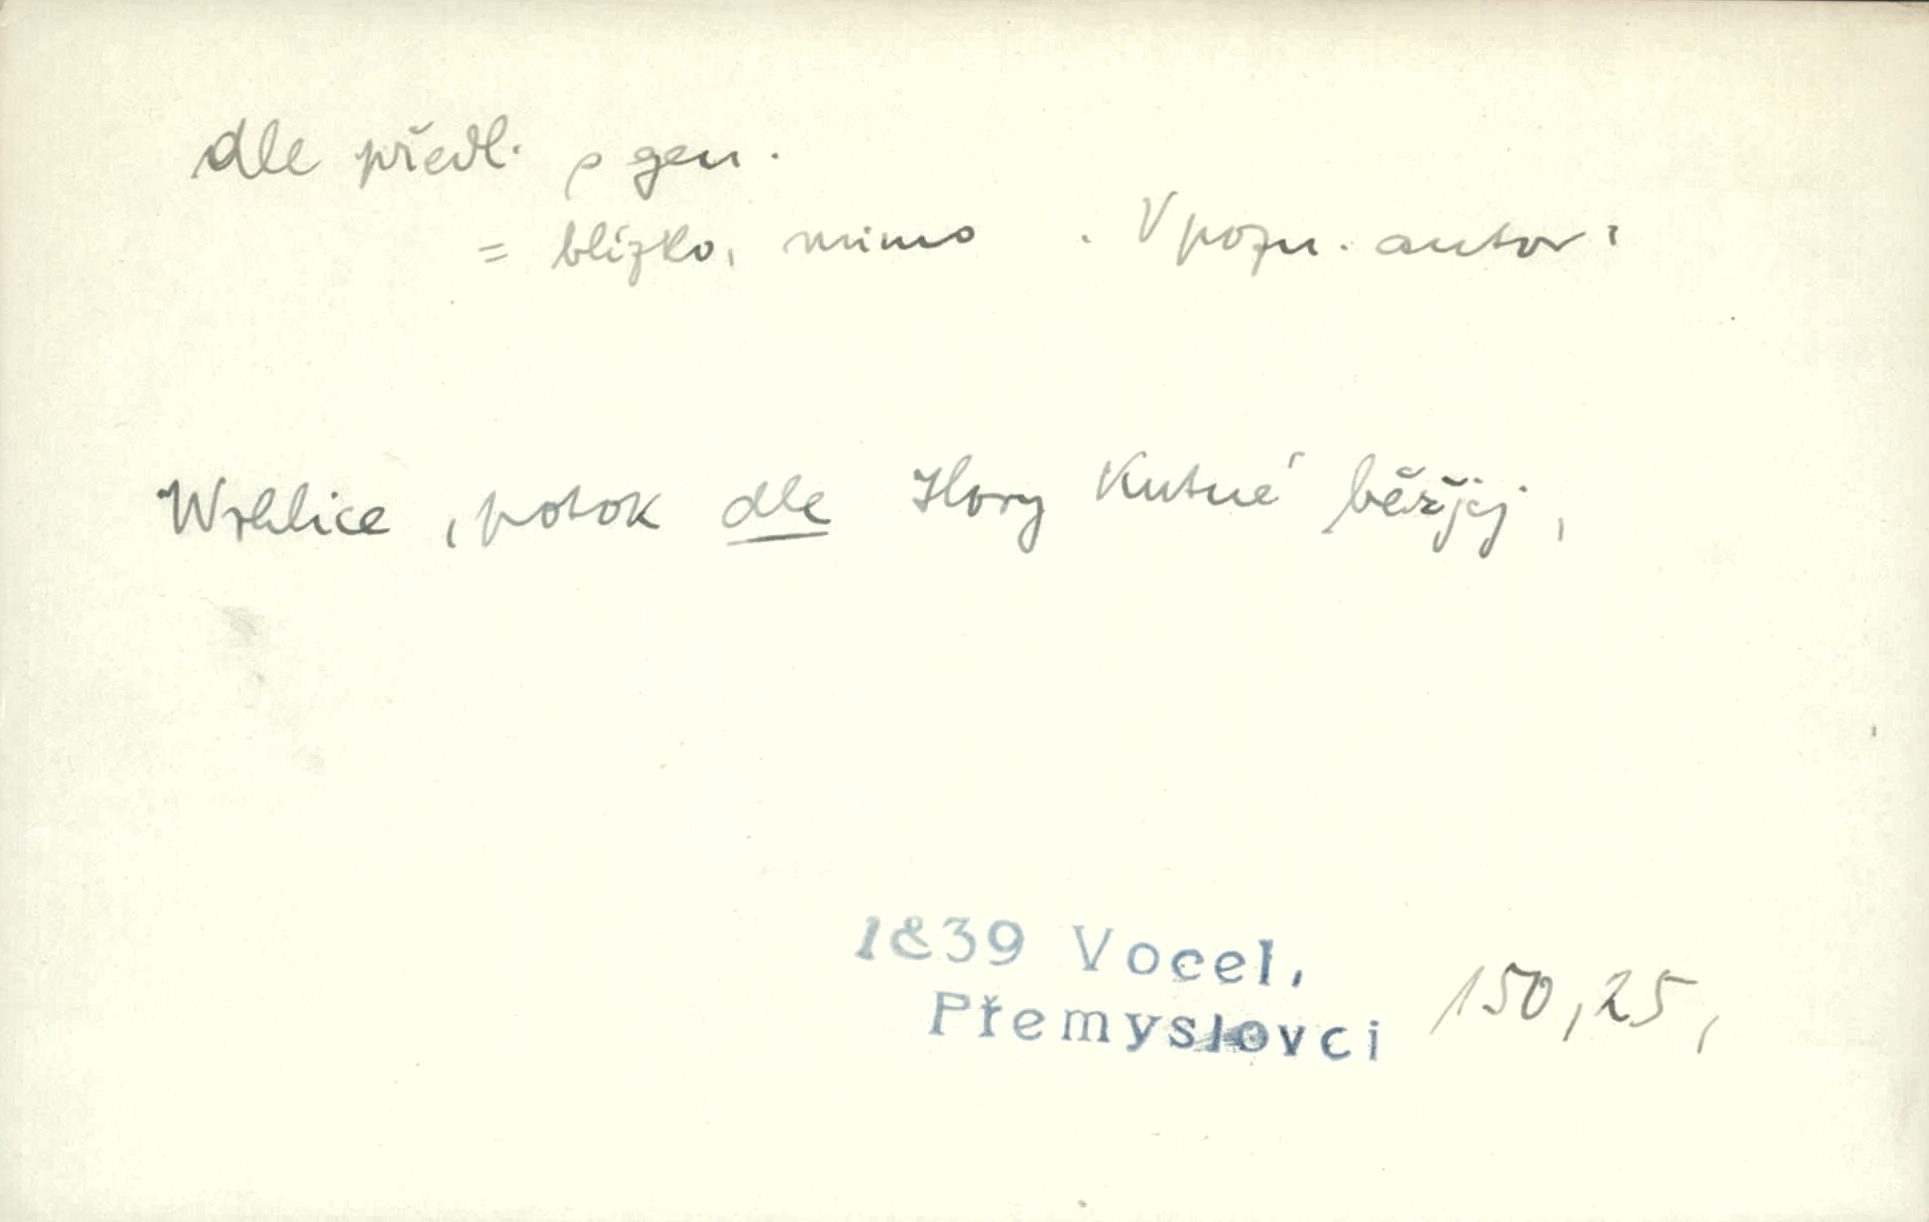 dle předl. s gen.
= blízko, mimo . V pozn. autor:
Wrchlice, potok dle Hory Kutné běžjcj,
1839 Vocel,
Přemyslovci 150,25,